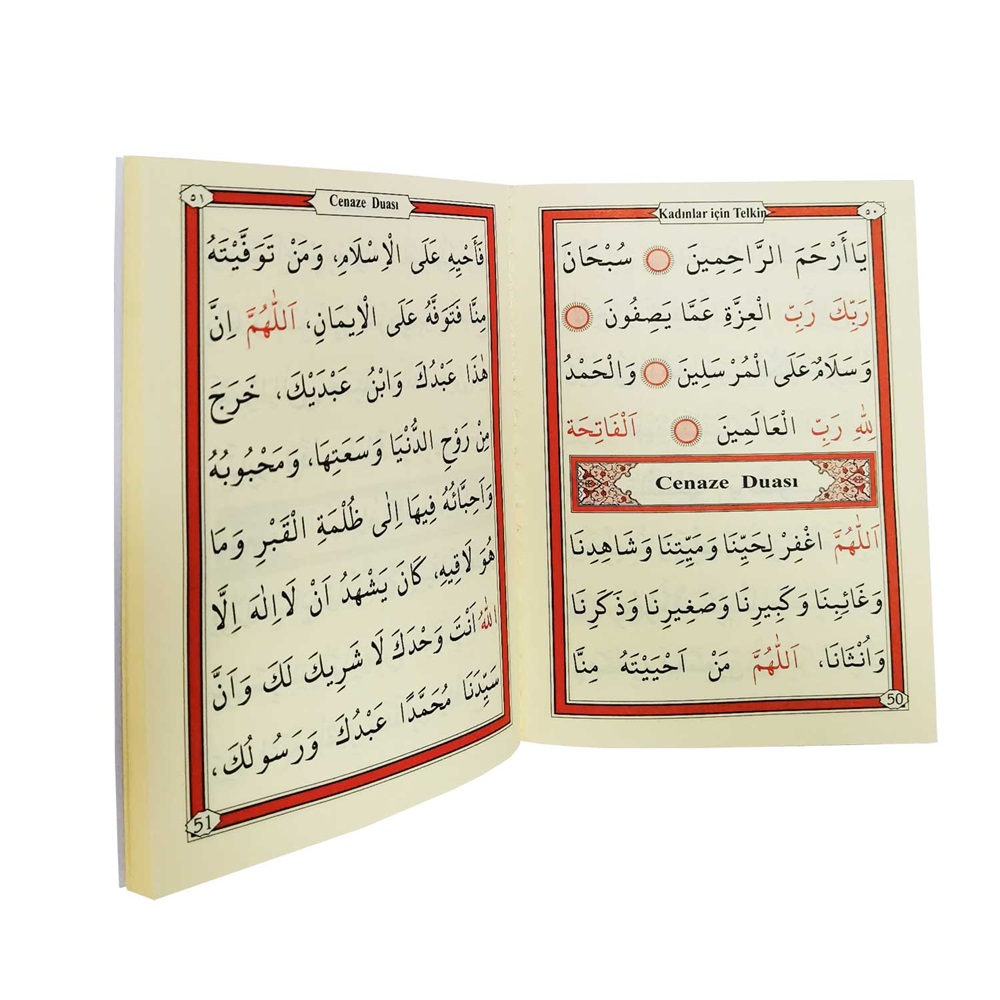 Kadınlar için Telkin
٥٠
يَا أَرْحَمَ الرَّاحِمِينَ سُبْحَانَ
رَبِّكَ رَبِّ الْعِزَّةِ عَمَّا يَصِفُونَ
وَسَلَامٌ عَلَى الْمُرْسَلِينَ وَالْحَمْدُ
لِلّٰهِ رَبِّ الْعَالَمِينَ اَلْفَاتِحَة
Cenaze Duası
اَللّٰهُمَّ اغْفِرْ لِحَيِّنَا وَمَيِّتِنَا وَشَاهِدِنَا
وَغَائِبِنَا وَكَبِيرِنَا وَصَغِيرِنَا وَذَكَرِنَا
وَاُنْثَانَا، اَللّٰهُمَّ مَنْ اَحْيَيْتَهُ مِنَّا
50
٥١
Cenaze Duası
فَأَحْيِهِ عَلَى الْاِسْلَامِ، وَمَنْ تَوَفَّيْتَهُ
مِنَّا فَتَوَفَّهُ عَلَى الْاِيمَانِ، اَللّٰهُمَّ اِنَّ
هٰذَا عَبْدُكَ وَابْنُ عَبْدَيْكَ، خَرَجَ
مِنْ رَوْحِ الدُّنْيَا وَسَعَتِهَا، وَمَحْبُوبُهُ
وَاَحِبَّائُهُ فِيهَا اِلٰى ظُلْمَةِ الْقَبْرِ وَمَا
هُوَ لَاقِيهِ، كَانَ يَشْهَدُ اَنْ لَا اِلٰهَ اِلَّا
اللّٰهُ اَنْتَ وَحْدَكَ لَا شَرِيكَ لَكَ وَاَنَّ
سَيِّدَنَا مُحَمَّدًا عَبْدُكَ وَرَسُولُكَ،
51